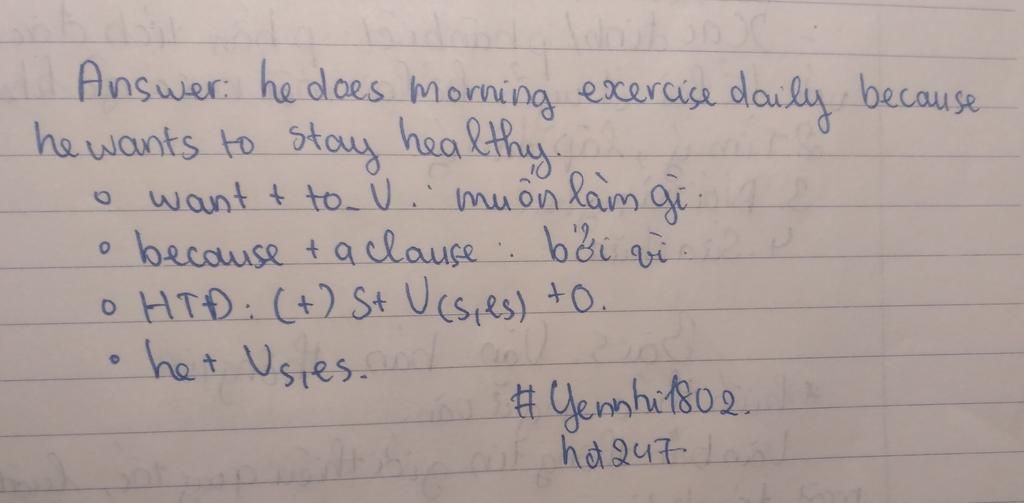 Answer: he does morning exercise daily because
he wants to stay healthy.
o want + to_V : muốn làm gì.
o because + a clause : bởi vì.
o HTĐ : (+) S+ V(s,es) +O.
o he + Vs,es.
# Yennhi1802.
hd247.